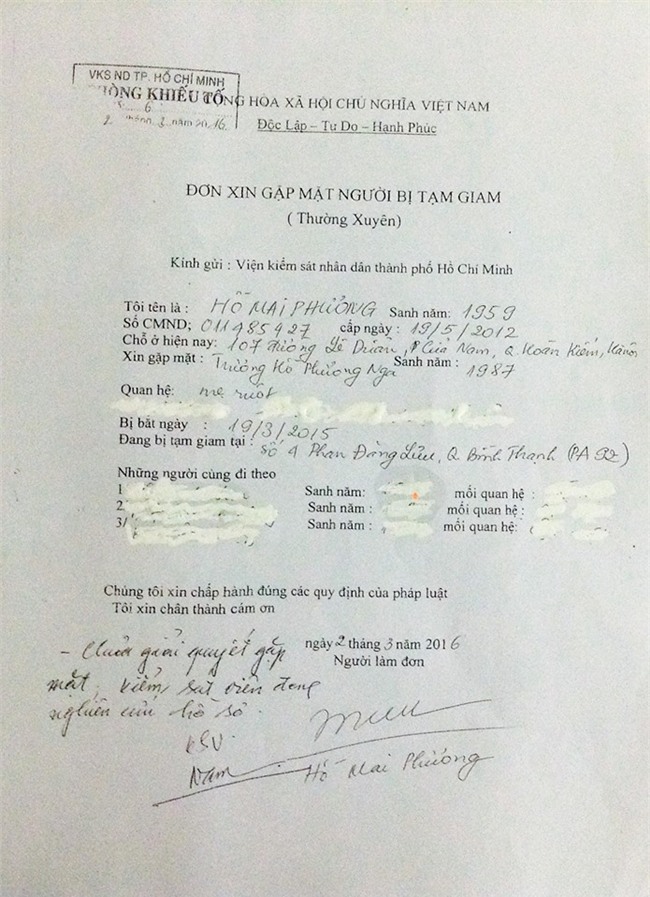 VKS ND TP. HỒ CHÍ MINH
PHÒNG KHIẾU TỐ
6
2 tháng 3 năm 2016
CỘNG HÒA XÃ HỘI CHỦ NGHĨA VIỆT NAM
Độc Lập – Tự Do – Hạnh Phúc
ĐƠN XIN GẶP MẶT NGƯỜI BỊ TẠM GIAM
( Thường Xuyên)
Kính gửi : Viện kiểm sát nhân dân thành phố Hồ Chí Minh
Tôi tên là : HỒ MAI PHƯƠNG Sanh năm: 1959
Số CMND; 011485427 cấp ngày : 19/5/2012
Chỗ ở hiện nay: 107 đường Lê Duẩn, P Cửa Nam, Q. Hoàn Kiếm, Hà nội
Xin gặp mặt : Trương Hồ Phương Nga Sanh năm : 1987
Quan hệ: mẹ ruột
Bị bắt ngày : 19/3/2015
Đang bị tạm giam tại : Số 4 Phan Đăng Lưu, Q Bình Thạnh (PA 92)
Những người cùng đi theo
1 Sanh năm: mối quan hệ :
2, Sanh năm : mối quan hệ :
3/ Sanh năm : mối quan hệ:
Chúng tôi xin chấp hành đúng các quy định của pháp luật
Tôi xin chân thành cám ơn
ngày 2 tháng 3 năm 2016
Người làm đơn
- Chưa giải quyết gặp
mặt, kiểm sát viên đang
nghiên cứu hồ sơ.
KSV
Nam
Hồ Mai Phương